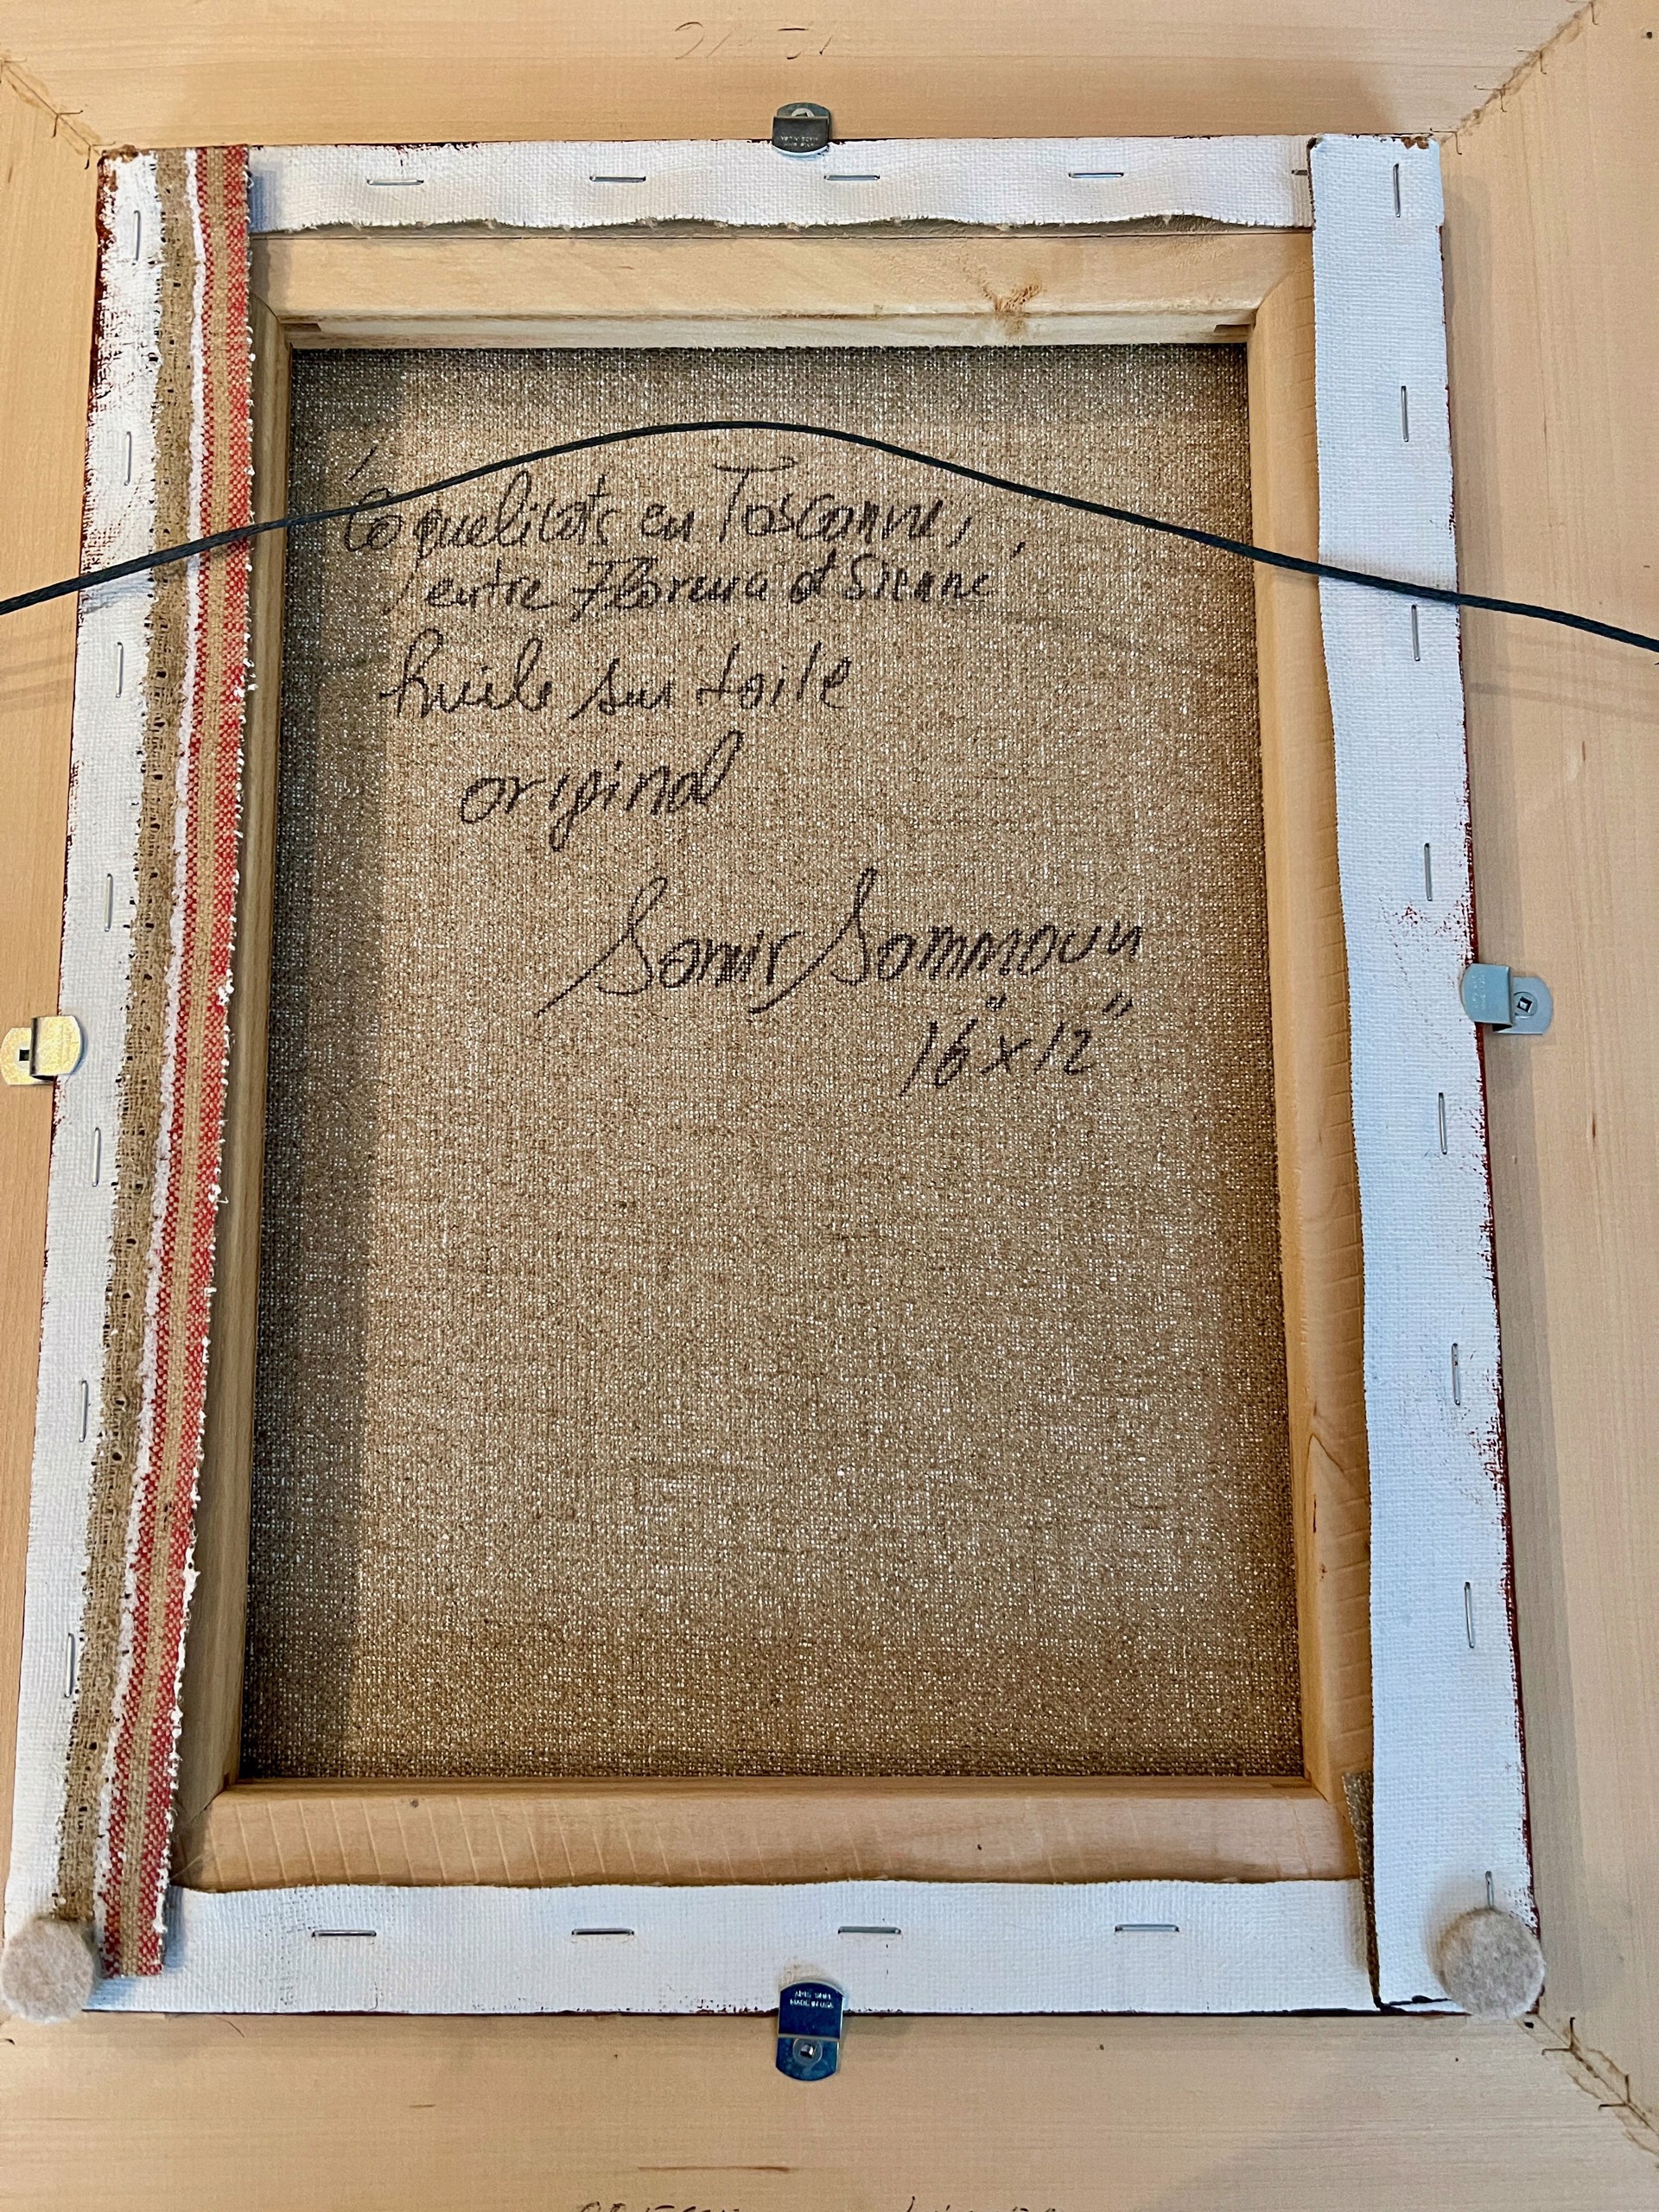 Coquelicots en Toscanne,
entre Florence et Sienne
huile sur toile
original
Samir Sammoun
16" x 12"
MADE IN USA